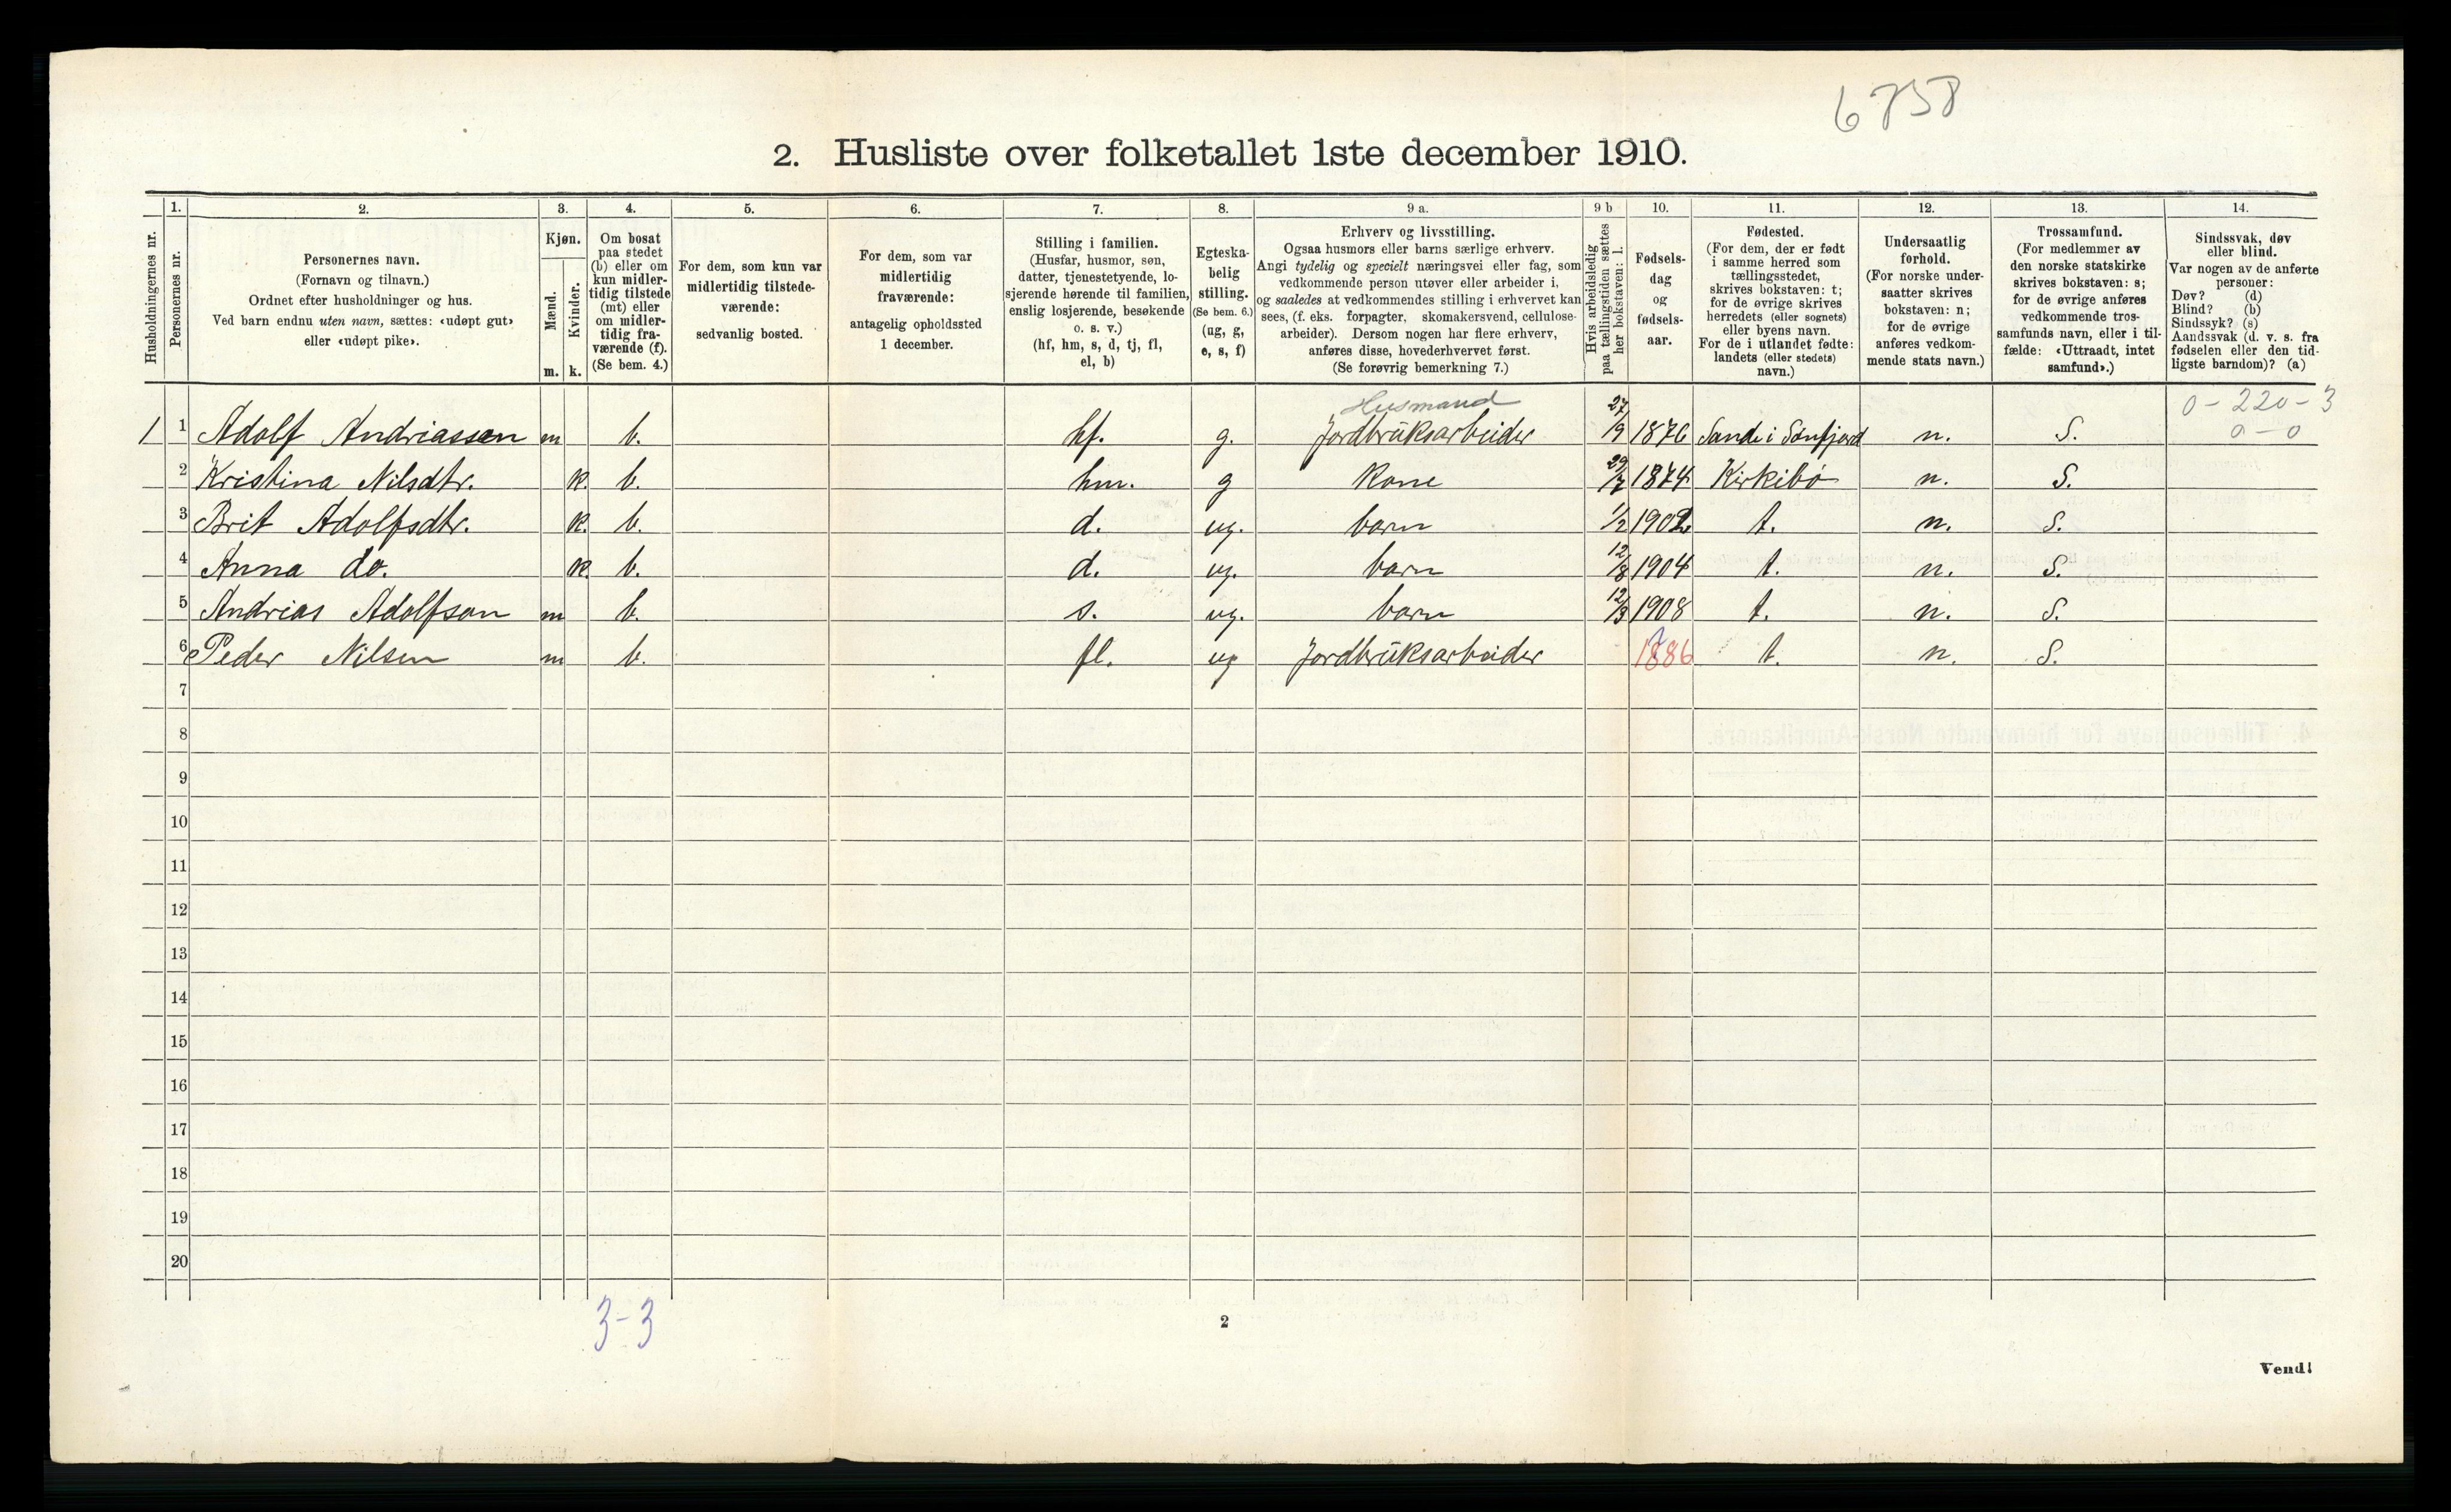 6758
2. Husliste over folketallet 1ste december 1910.
Husholdningernes nr.
1.
Personernes nr.
2.
Personernes navn.
(Fornavn og tilnavn.)
Ordnet efter husholdninger og hus.
Ved barn endnu uten navn, sættes: «udøpt gut»
eller «udøpt pike».
3.
Kjøn.
Mænd.
Kvinder.
m. k.
4.
Om bosat
paa stedet
(b) eller om
kun midler-
tidig tilstede
(mt) eller
om midler-
tidig fra-
værende (f).
(Se bem. 4.)
5.
For dem, som kun var
midlertidig tilstede-
værende:
sedvanlig bosted.
6.
For dem, som var
midlertidig
fraværende:
antagelig opholdssted
1 december.
7.
Stilling i familien.
(Husfar, husmor, søn,
datter, tjenestetyende, lo-
sjerende hørende til familien,
enslig losjerende, besøkende
o. s. v.)
(hf, hm, s, d, tj, fl,
el, b)
8.
Egteska-
belig
stilling.
(Se bem. 6.)
(ug, g,
e, s, f)
9 a.
Erhverv og livsstilling.
Ogsaa husmors eller barns særlige erhverv.
Angi tydelig og specielt næringsvei eller fag, som
vedkommende person utøver eller arbeider i,
og saaledes at vedkommendes stilling i erhvervet kan
sees, (f. eks. forpagter, skomakersvend, cellulose-
arbeider). Dersom nogen har flere erhverv,
anføres disse, hovederhvervet først.
(Se forøvrig bemerkning 7.)
9 b
Hvis arbeidsledig
paa tællingstiden sættes
her bokstaven: l.
10.
Fødsels-
dag
og
fødsels-
aar.
11.
Fødested.
(For dem, der er født
i samme herred som
tællingsstedet,
skrives bokstaven: t;
for de øvrige skrives
herredets (eller sognets)
eller byens navn.
For de i utlandet fødte:
landets (eller stedets)
navn.)
12.
Undersaatlig
forhold.
(For norske under-
saatter skrives
bokstaven: n;
for de øvrige
anføres vedkom-
mende stats navn.)
13.
Trossamfund.
(For medlemmer av
den norske statskirke
skrives bokstaven: s;
for de øvrige anføres
vedkommende tros-
samfunds navn, eller i til-
fælde: «Uttraadt, intet
samfund».)
14.
Sindssvak, døv
eller blind.
Var nogen av de anførte
personer:
Døv? (d)
Blind? (b)
Sindssyk? (s)
Aandssvak (d. v. s. fra
fødselen eller den tid-
ligste barndom)? (a)
Husmand 27 0-220-3
1 1 Adolf Andriassen m b. hf. g. Jordbruksarbeider /9 1876 Sande i Sönfjord n. S. 0-0
2 Kristina Nilsdtr. k. b. hm. g Kone 29/7 1874 Kirkibö n. S.
3 Brit Adolfsdtr. k. b. d. ug. barn 1/2 1902 t. n. S.
4 Anna do. k. b. d. ug. barn 12/8 1904 t. n. S.
5 Andrias Adolfson m b. s. ug. barn 12/3 1908 t. n. S.
6 Peder Nilsen m b. fl. ug Jordbruksarbeider 1886 t. n. S.
7
8
9
10
11
12
13
14
15
16
17
18
19
20
3-3
2
Vend!